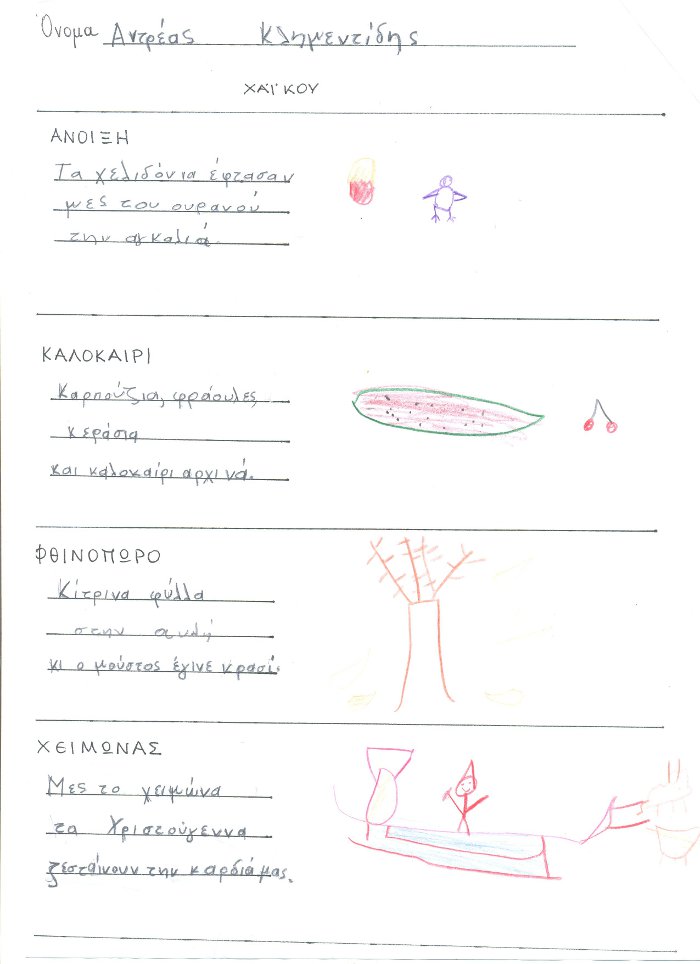 Όνομα Αντρέας Κλημεντίδης
ΧΑΪΚΟΥ
ΑΝΟΙΞΗ
Τα χελιδόνια έφτασαν
μες του ουρανού
την αγκαλιά.
ΚΑΛΟΚΑΙΡΙ
Καρπούζια, φράουλες
κεράσια
και καλοκαίρι αρχινά.
ΦΘΙΝΟΠΩΡΟ
Κίτρινα φύλλα
στην αυλή
κι ο μούστος έγινε κρασί.
ΧΕΙΜΩΝΑΣ
Μες το χειμώνα
τα Χριστούγεννα
ζεσταίνουν την καρδιά μας.